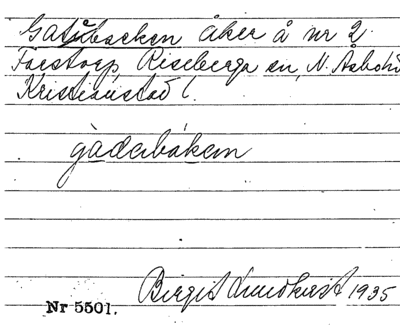 Gatubacken åker å nr 2
Färstorp, Riseberga sn, N. Åsbohd
Kristianstad l.
gadabákem
Birgit Lundkvist 1935
Nr 5501.